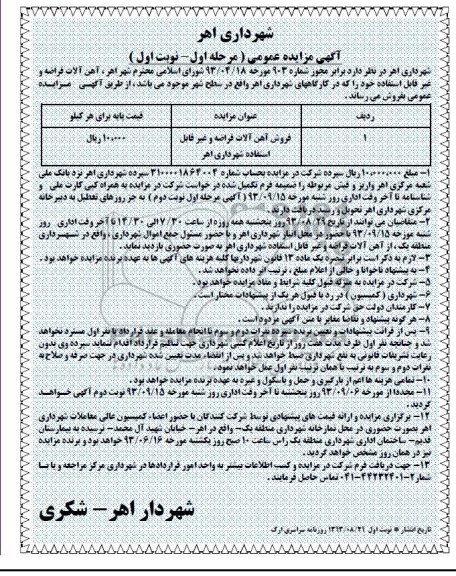 شهرداری اهر
آگهی مزایده عمومی ( مرحله اول - نوبت اول )
شهرداری اهر در نظر دارد برابر مجوز شماره ۹۰۳ مورخه ۹۳/۰۴/۱۸ شورای اسلامی محترم شهر اهر ، آهن آلات قراضه و
غیر قابل استفاده خود را که در کارگاههای شهرداری اهر واقع در سطح شهر موجود می باشد ، از طریق آگهی مزایده
عمومی بفروش می رساند .
ردیف عنوان مزایده قیمت پایه برای هر کیلو
۱ فروش آهن آلات قراضه و غیر قابل ۱۰,۰۰۰ ریال
استفاده شهرداری اهر
۱- مبلغ ۱۰,۰۰۰,۰۰۰ ریال سپرده شرکت در مزایده بحساب شماره سپرده شهرداری اهر نزد بانک ملی
شعبه مرکزی اهر واریز و فیش مربوطه را ضمیمه فرم تکمیل شده در خواست شرکت در مزایده به همراه کپی کارت ملی و
شناسنامه تا آخر وقت اداری روز شنبه مورخه ۹۳/۰۹/۱۵ ( آگهی مرحله اول نوبت دوم ) به جز روزهای تعطیل به دبیرخانه
مرکزی شهرداری اهر تحویل و رسید دریافت دارند .
۲- متقاضیان می توانند از تاریخ روز پنجشنبه همه روزه از ساعت ۷/۳۰ الی ۱۴/۳۰ تا آخر وقت اداری روز
شنبه مورخه ۹۳/۰۹/۱۵ با حضور در محل انبار شهرداری اهر و با حضور مسئول جمع اموال شهرداری ، واقع در شهرداری
منطقه یک ، از آهن آلات قراضه و غیر قابل استفاده شهرداری اهر به صورت حضوری بازدید نماید .
۳- لازم به ذکر است برابر تبصره یک ماده ۱۳ قانون شهرداریها کلیه هزینه های آگهی ها به عهده برنده مزایده خواهد بود .
۴- به پیشنهاد ناخوانا و خالی از اعلام مبلغ ، ترتیب اثر داده نخواهد شد .
۵- شرکت در مزایده به منزله قبول کلیه شرایط و مفاد مزایده خواهد بود .
۶- شهرداری ( کمیسیون ) در رد یا قبول هر یک از پیشنهادات مختار است .
۷- کارمندان دولت حق شرکت در مزایده را ندارند .
۸- هر گونه پیشنهاد و تقاضا مغایر با متن آگهی مردود است .
۹- پس از قرائت پیشنهادات و تعیین برنده سپرده نفرات دوم و سوم تا انجام معامله و عقد قرارداد با نفر اول مسترد نخواهد
شد و چنانچه نفر اول ظرف مدت هفت روز از تاریخ اعلام کتبی شهرداری جهت تنظیم قرارداد اقدام ننماید سپرده وی بدون
رعایت تشریفات قانونی به نفع شهرداری ضبط خواهد شد و پس از انقضاء مدت تعیین شده شهرداری در جهت صرفه و صلاح به
نفرات دوم و سوم به ترتیب با همان ترتیب نفر اول عمل خواهد نمود .
۱۰- تمامی هزینه ها اعم از بارگیری و حمل و باسکول و غیره به عهده برنده مزایده خواهد بود .
۱۱- مجددا از مورخه ۹۳/۰۹/۰۶ روز پنجشنبه تا آخر وقت اداری روز شنبه مورخه ۹۳/۰۹/۱۵ نوبت دوم آگهی خواهد
گردید .
۱۲- برگزاری مزایده و ارائه قیمت های پیشنهادی توسط شرکت کنندگان با حضور اعضاء کمیسیون عالی معاملات شهرداری
اهر بصورت حضوری در محل نمازخانه شهرداری منطقه یک- واقع در اهر- خیابان شهید آل محمد- نرسیده به بیمارستان
قدیم- ساختمان اداری شهرداری منطقه یک راس ساعت ۱۰ صبح روز یکشنبه مورخه ۹۳/۰۶/۱۶ خواهد بود و برنده مزایده
نیز در همان روز مشخص خواهد گردید .
۱۳- جهت دریافت فرم شرکت در مزایده و کسب اطلاعات بیشتر به واحد امور قراردادها در شهرداری مرکز مراجعه و یا با
شماره ۲-۰۴۱-۴۴۲۳۲۴۰۱ تماس حاصل فرمایند .
شهردار اهر - شکری
تاریخ انتشار * نوبت اول ۱۳۹۳/۰۸/۲۹ روزنامه سراسری ارک